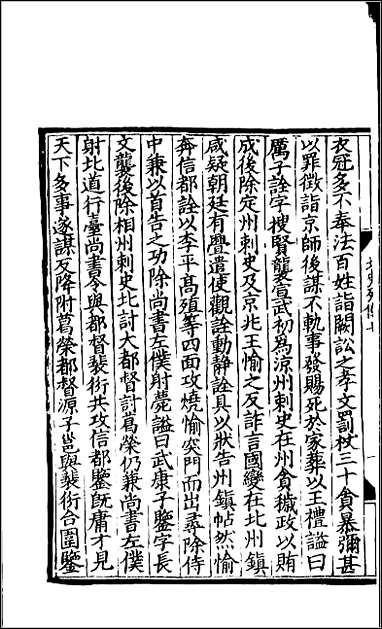 衣冠多不奉法百姓詣闕訟之孝文罰杖三十貪暴彌甚
以罪徵詣京師後謀不軌事發賜死於家葬以王禮謚曰
厲子詮字搜賢襲宣武初爲涼州刺史在州貪穢政以賄
成後除定州刺史及京兆王愉之反詐言國變在北州鎮
咸疑朝廷有釁遣使觀詮動静詮具以狀告州鎮帖然愉
奔信都詮以李平髙殖等四面攻燒愉突門而出尋除侍
中兼以首告之功除尚書左僕射薨謚曰武康子鑒字長
文襲後除相州刺史北討大都督討葛榮仍兼尚書左僕
射北道行臺尚書令與都督裴衍共攻信都鑒旣庸才見
天下多事遂謀反降附葛榮都督源子邕與裴衍合圍鑒